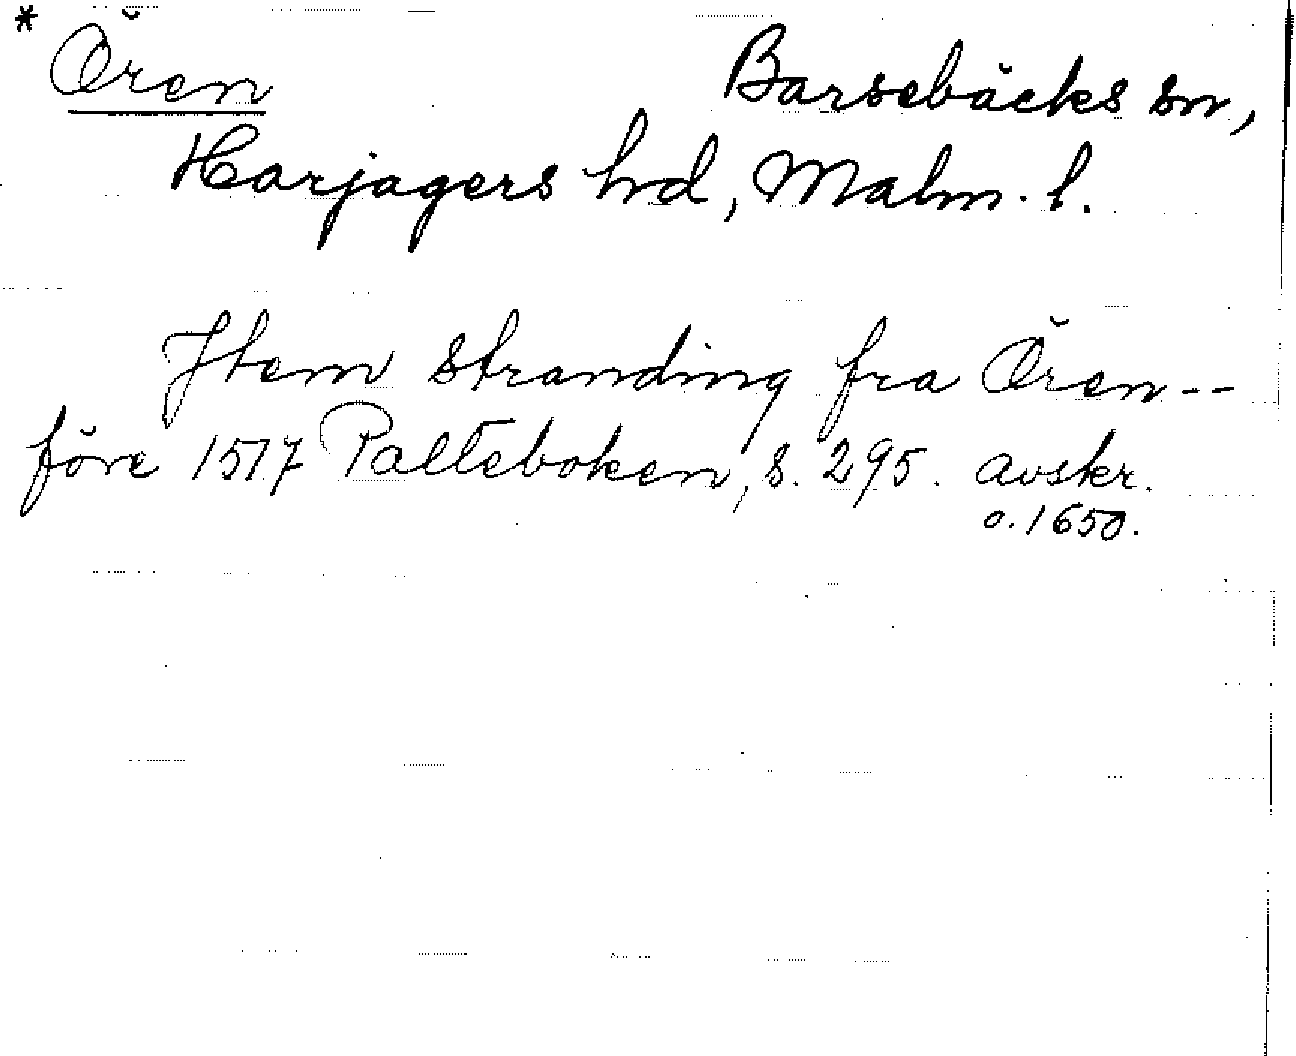 * Ören Barsebäcks sn,
Harjagers hd, Malm. l.
Item stranding fra Ören--
före 1517 Palteboken, s. 295. avskr.
o. 1650.